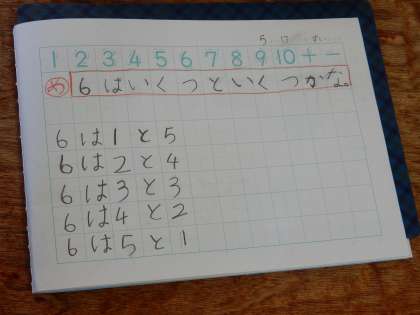 1 2 3 4 5 6 7 8 9 10 + −
め 6はいくつといくつかな。
6は1と5
6は2と4
6は3と3
6は4と2
6は5と1